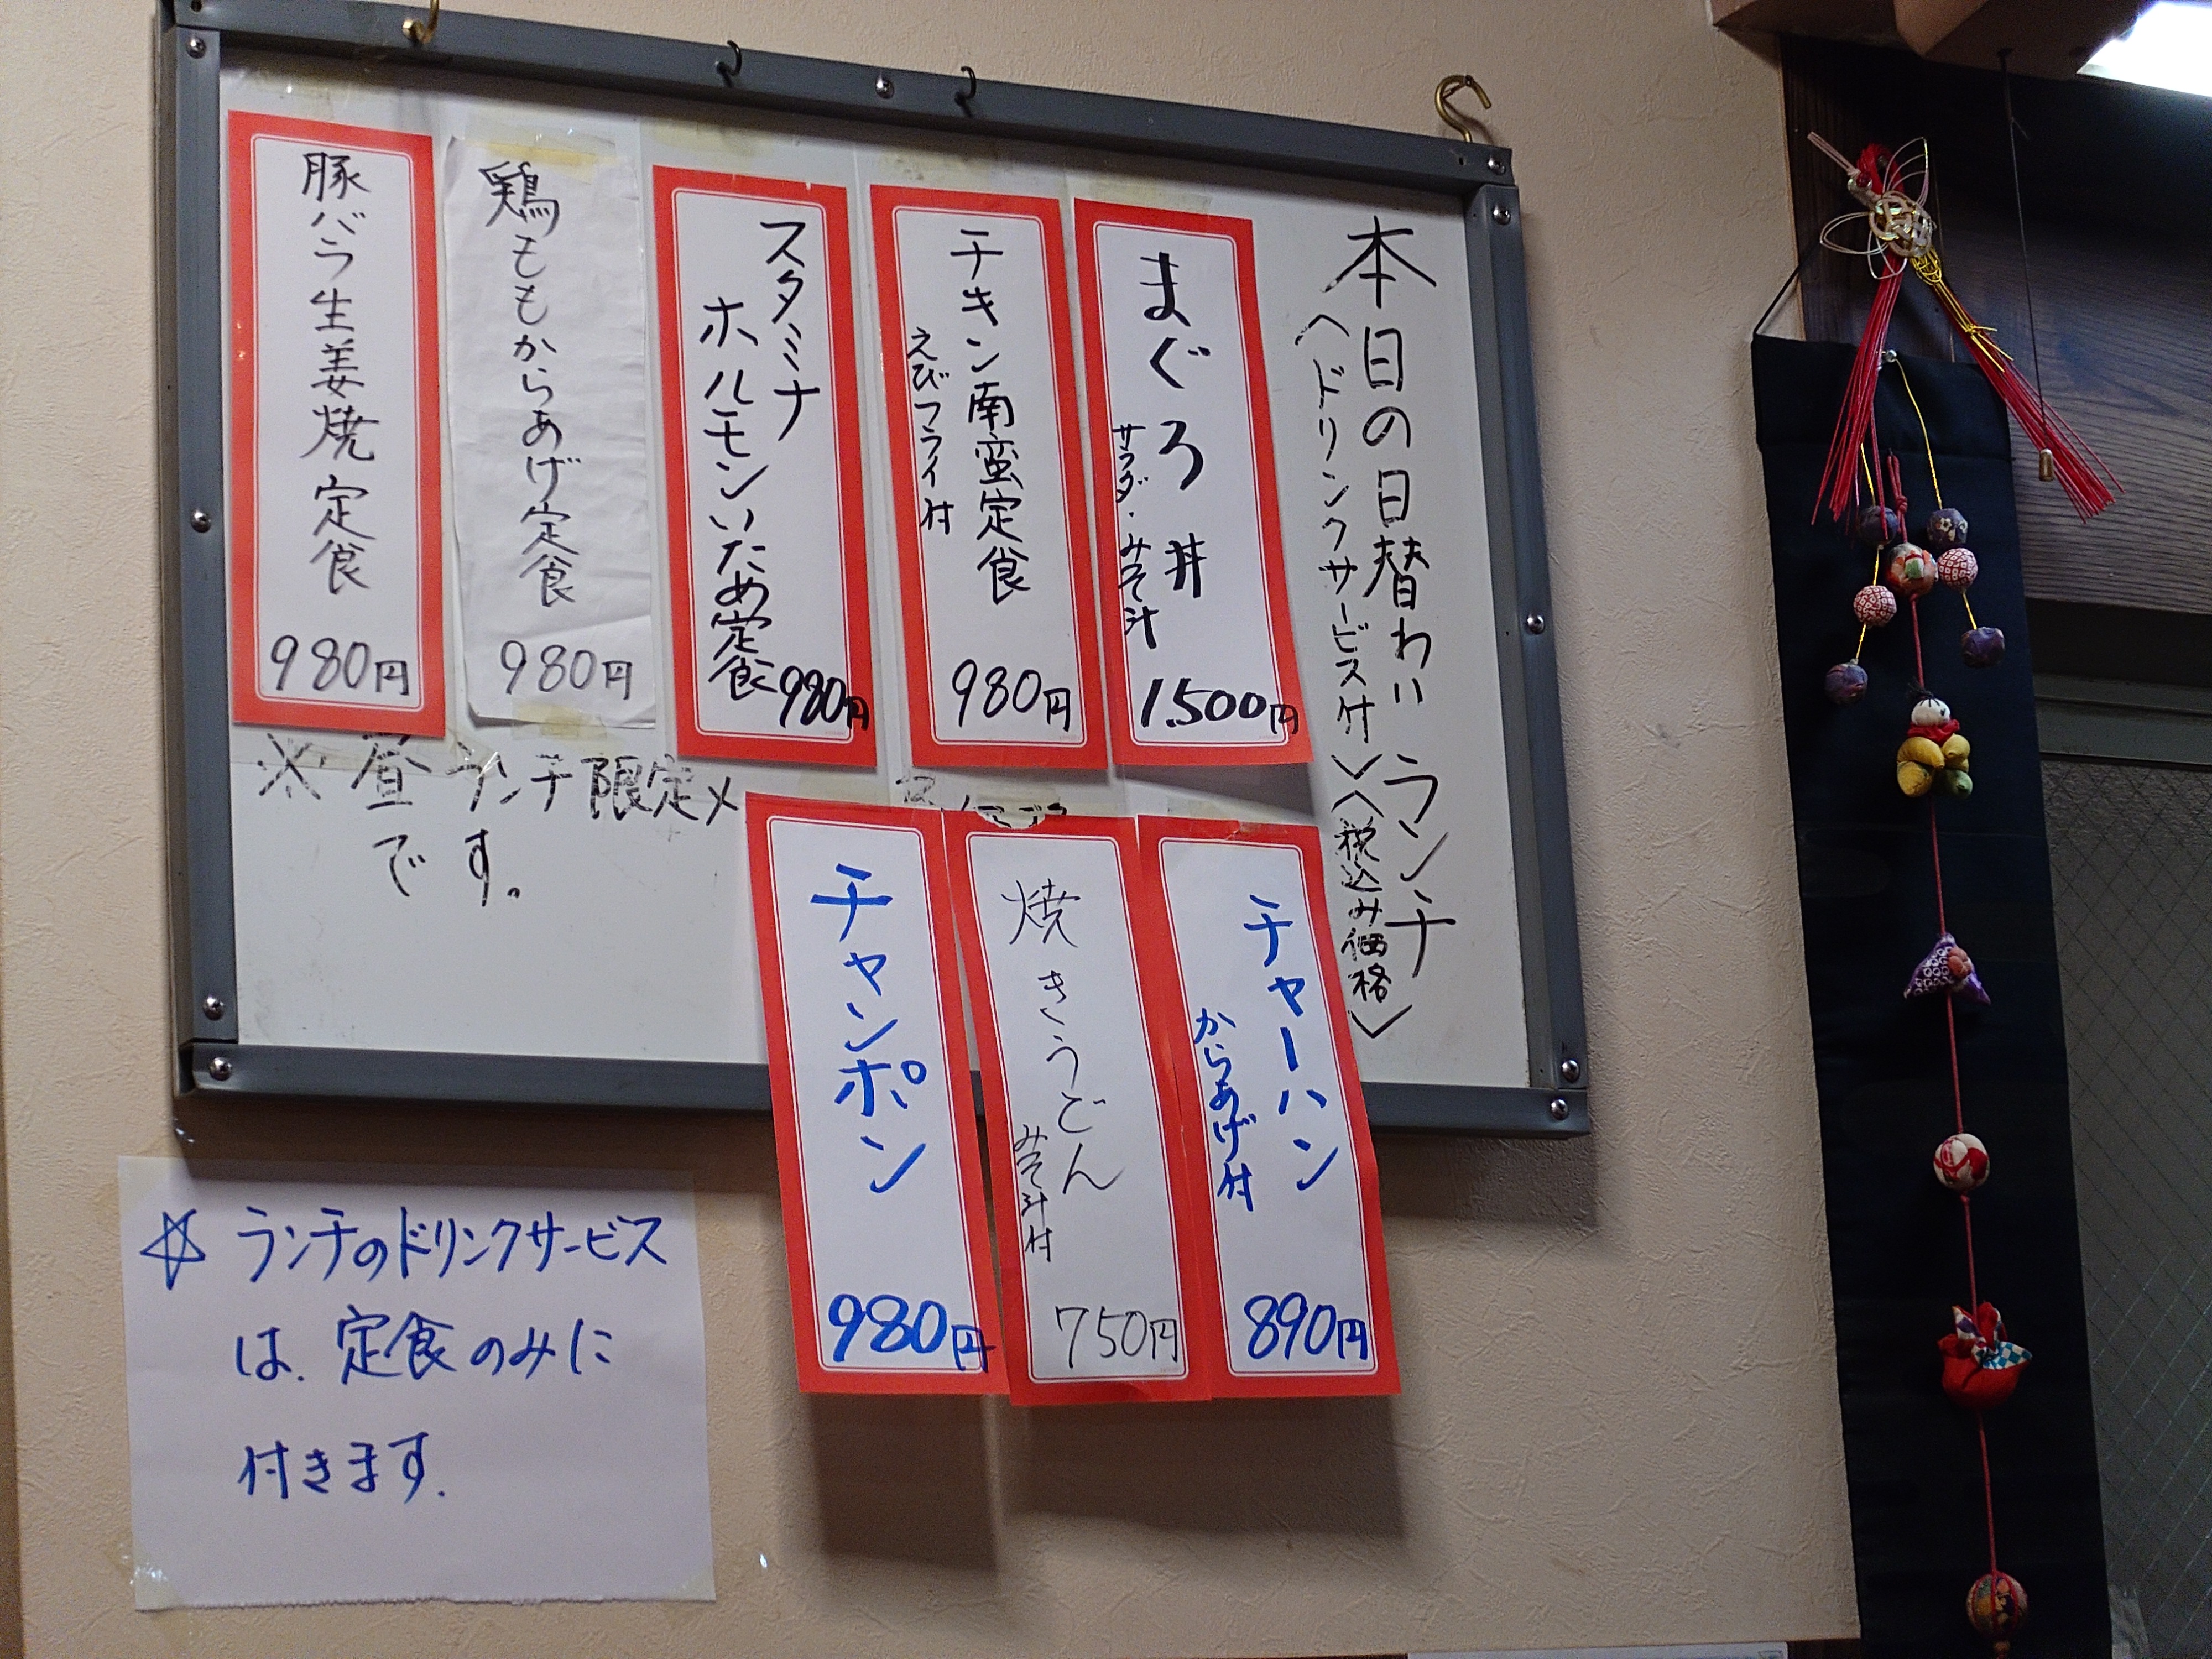 本日の日替わりランチ
〈ドリンクサービス付〉〈税込み価格〉
まぐろ丼
サラダ・みそ汁
1.500円
チキン南蛮定食
えびフライ付
980円
スタミナ
ホルモンいため定食
980円
鶏ももからあげ定食
980円
豚バラ生姜焼定食
980円
※昼ランチ限定メ
です。
チャーハン
からあげ付
890円
焼きうどん
みそ汁付
750円
チャンポン
980円
☆ランチのドリンクサービス
は、定食のみに
付きます.